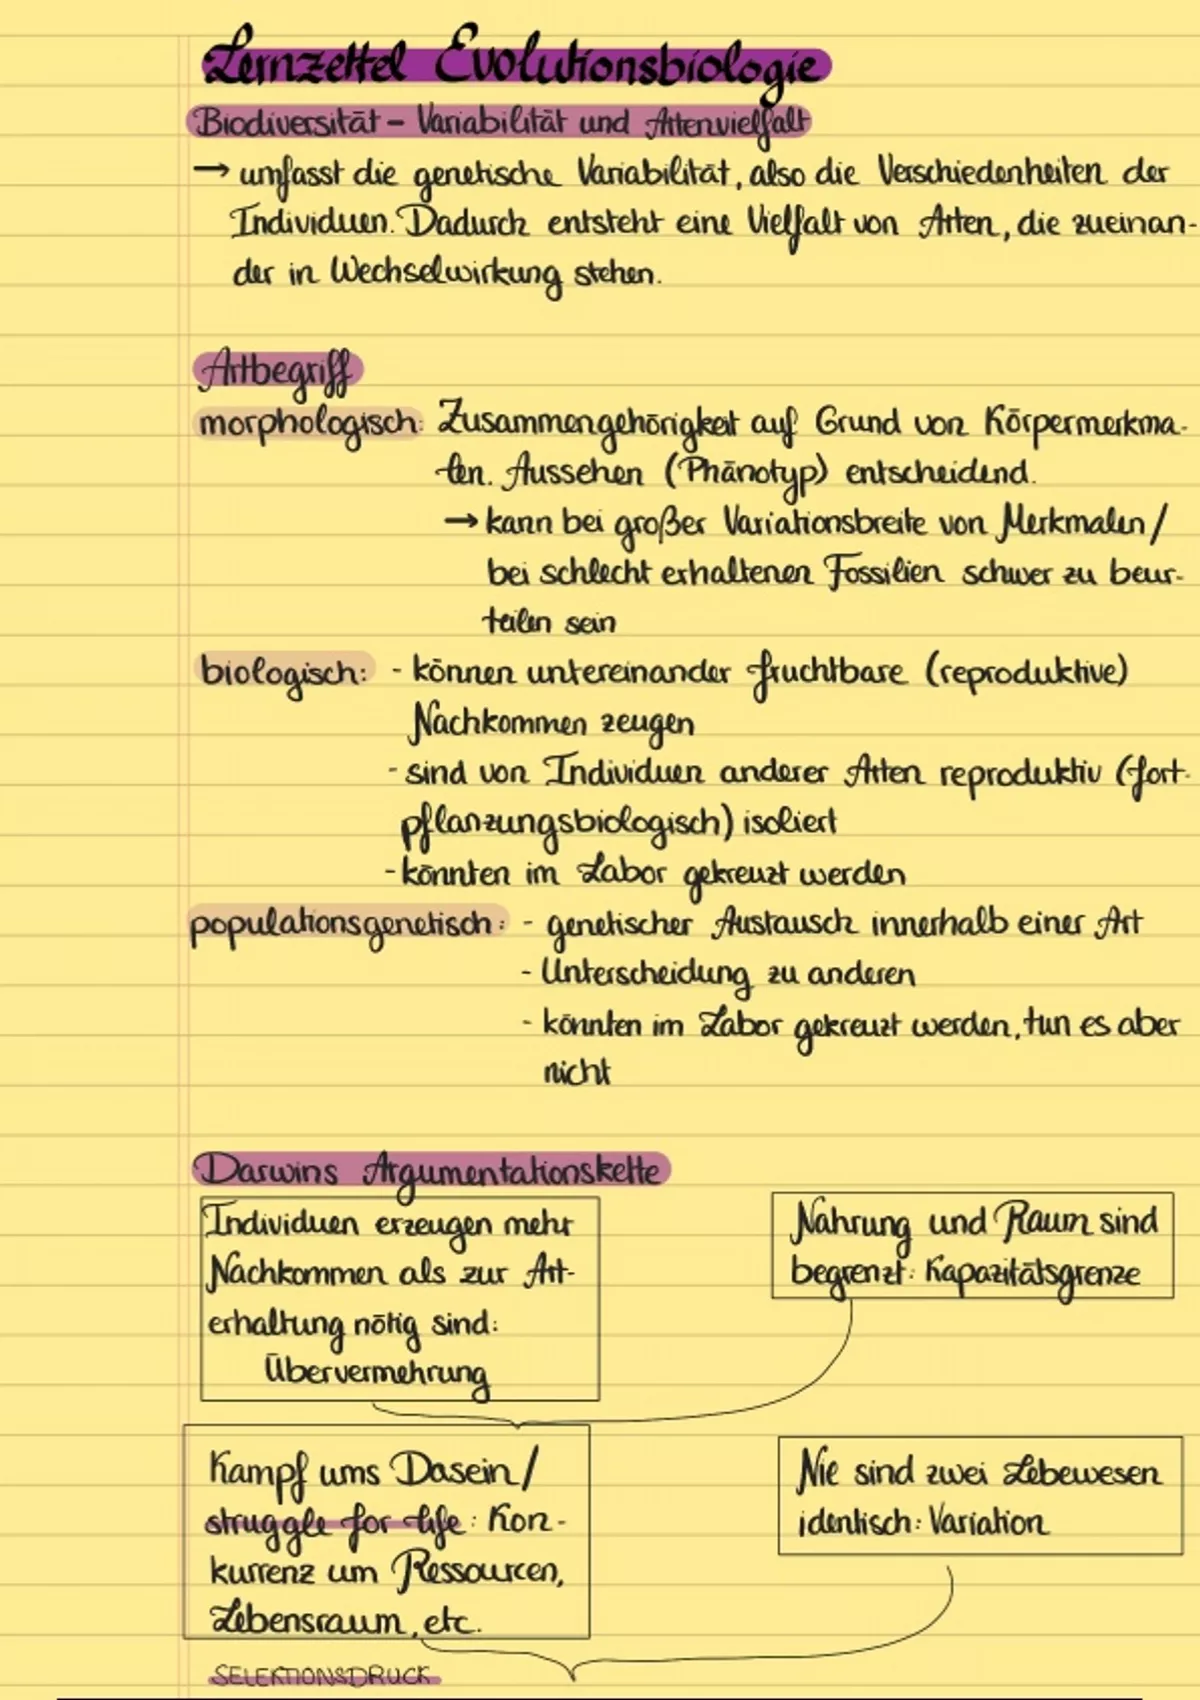 Lernzettel Evolutionsbiologie
Biodiversität - Variabilität und Artenvielfalt
→ umfasst die genetische Variabilität, also die Verschiedenheiten der
Individuen. Dadurch entsteht eine Vielfalt von Arten, die zueinan-
der in Wechselwirkung stehen.
Artbegriff
morphologisch: Zusammengehörigkeit auf Grund von Körpermerkma-
len. Aussehen (Phänotyp) entscheidend.
→ kann bei großer Variationsbreite von Merkmalen/
bei schlecht erhaltenen Fossilien schwer zu beur-
teilen sein
biologisch: - können untereinander fruchtbare (reproduktive)
Nachkommen zeugen
- sind von Individuen anderer Arten reproduktiv (fort-
pflanzungsbiologisch) isoliert
- könnten im Labor gekreuzt werden
populationsgenetisch: - genetischer Austausch innerhalb einer Art
- Unterscheidung zu anderen
- könnten im Labor gekreuzt werden, tun es aber
nicht
Darwins Argumentationskette
Individuen erzeugen mehr
Nachkommen als zur Art-
erhaltung nötig sind:
Übervermehrung
Nahrung und Raum sind
begrenzt: Kapazitätsgrenze
Kampf ums Dasein/
struggle for life: Kon-
kurrenz um Ressourcen,
Lebensraum, etc.
Nie sind zwei Lebewesen
identisch: Variation
SELEKTIONSDRUCK